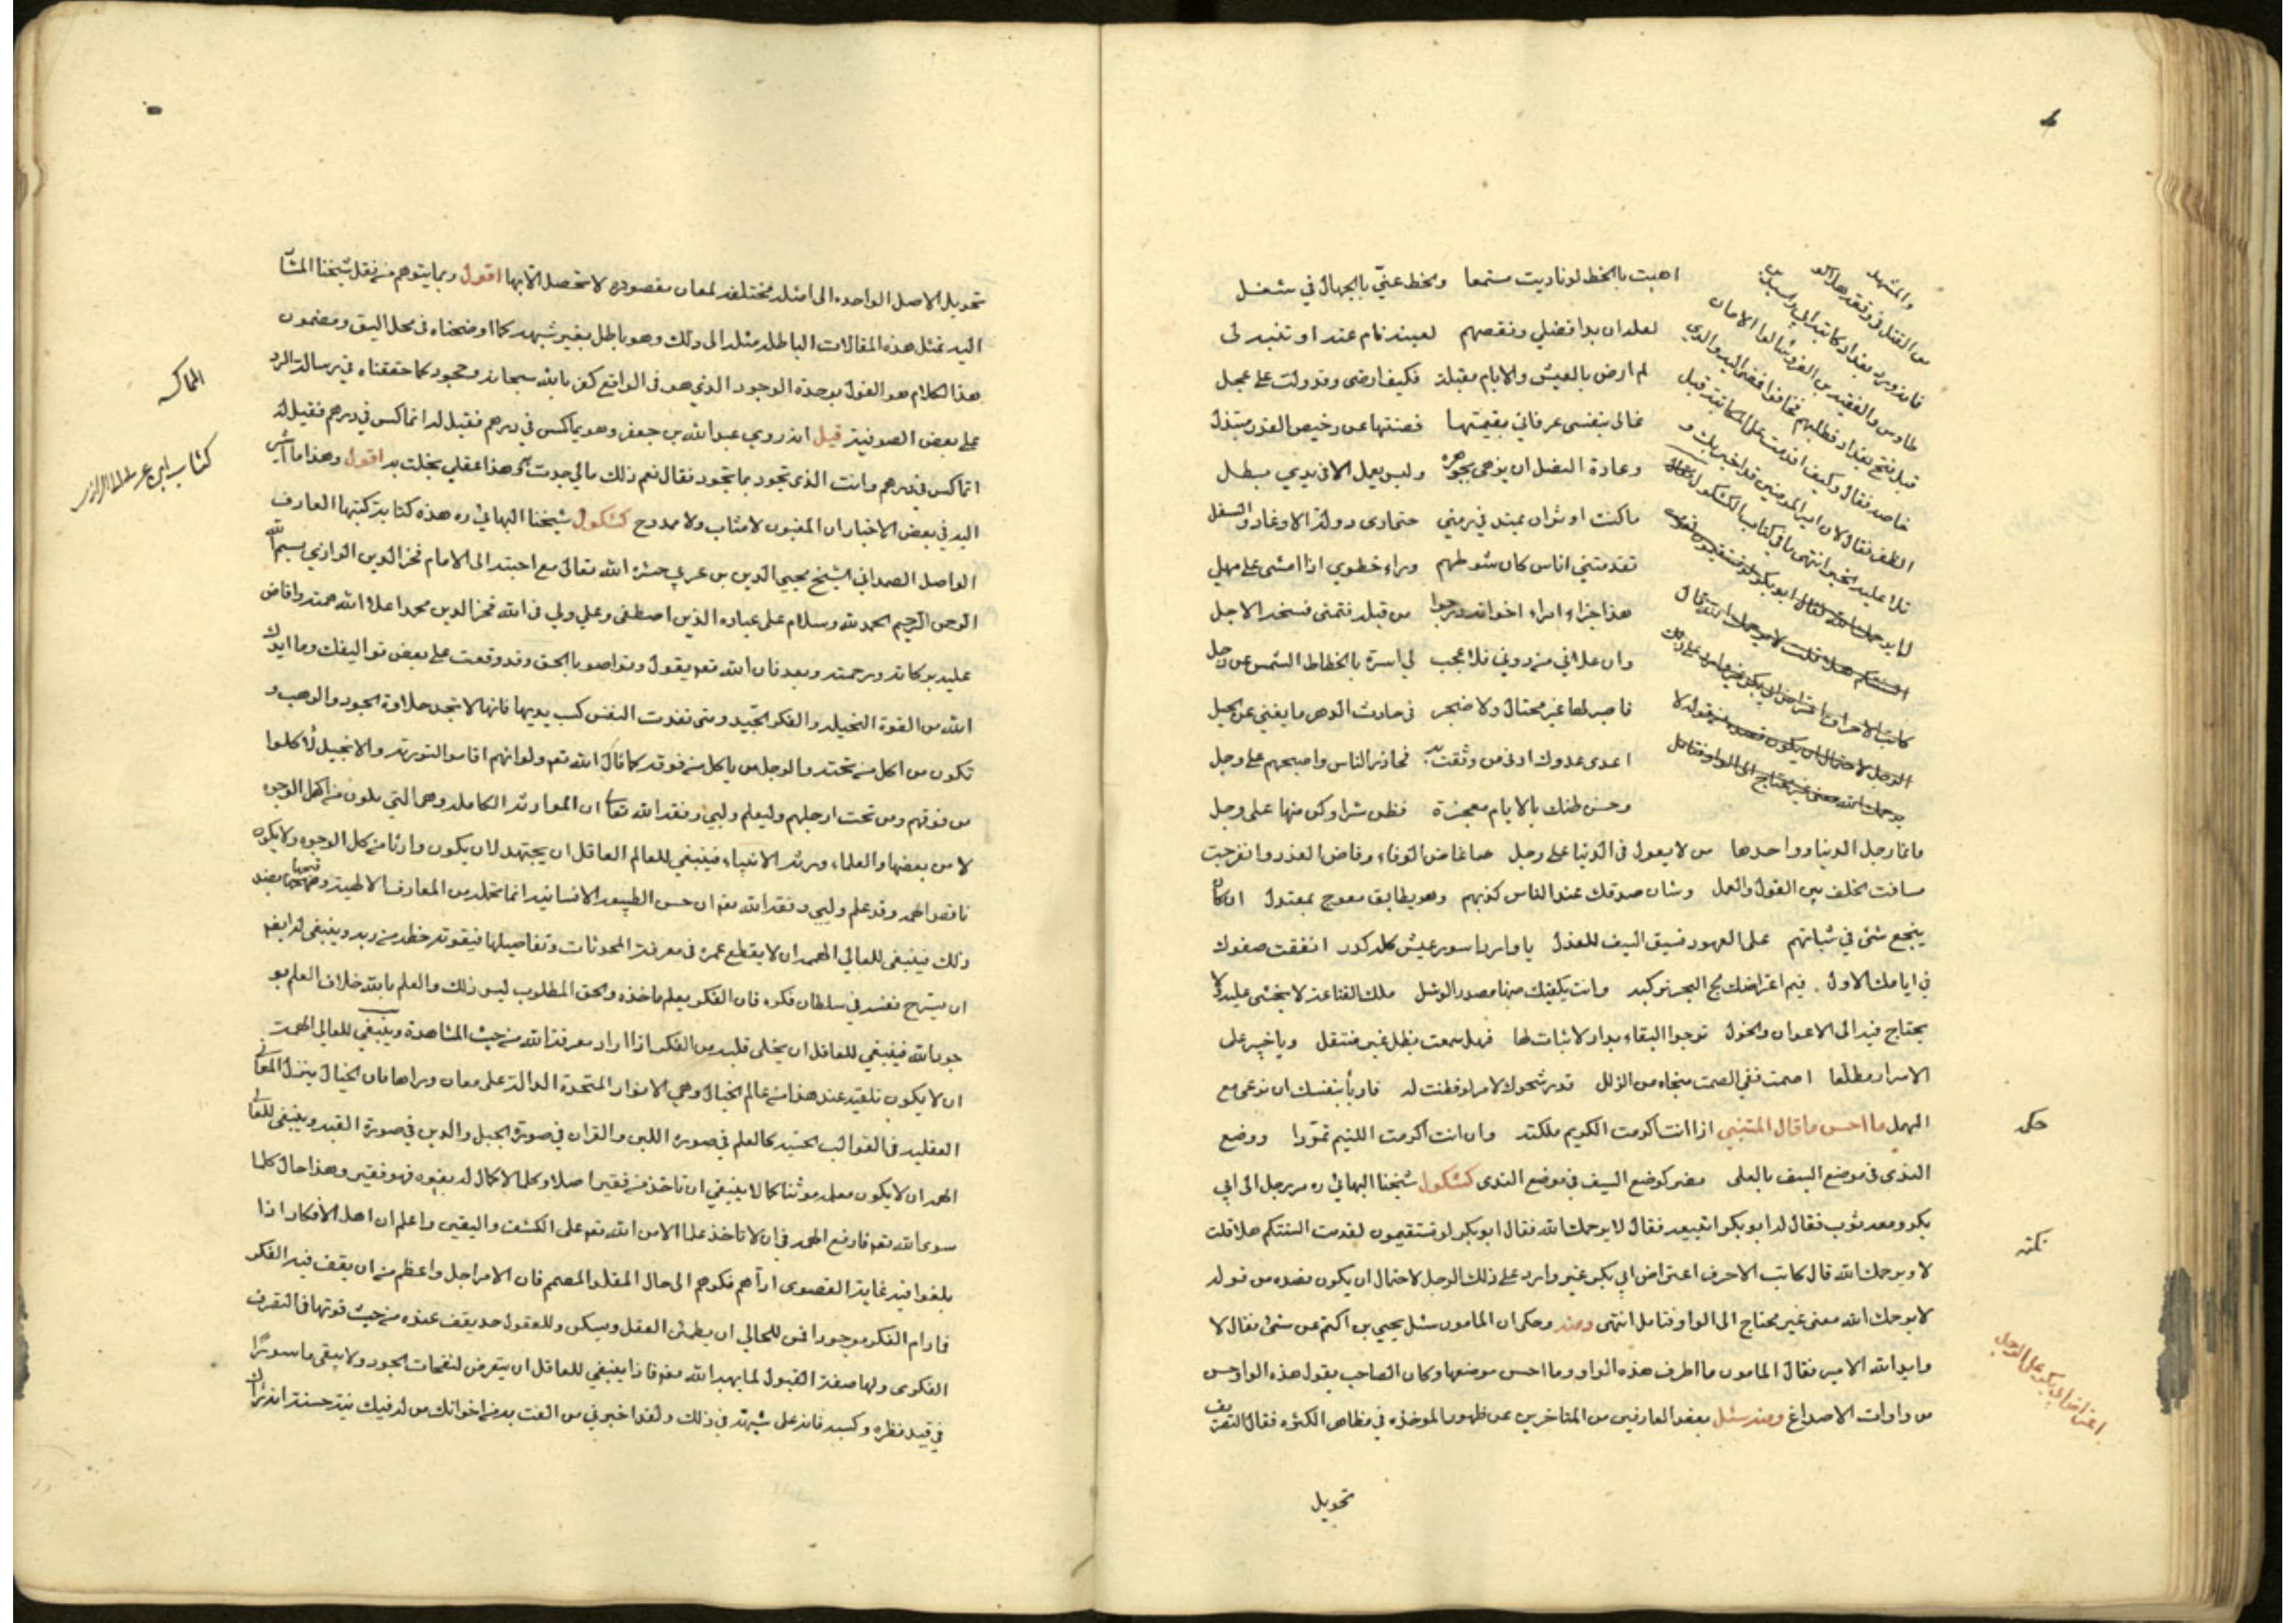 اهبت بالحظ لو ناديت مستمعا والحظ عني بالجهال في شغل
لعله ان بدا فضلي ونقصهم لعينه نام عنهم او تنبه لي
لم ارض بالعيش والايام مقبلة فكيف ارضى وقد ولت على عجل
غالى بنفسي عرفاني بقيمتها فصنتها عن رخيص القدر مبتذل
وعادة النصل ان يزهى بجوهره وليس يعمل الا في يدي بطل
ما كنت اوثر ان يمتد بي زمني حتى ارى دولة الاوغاد والسفل
تقدمتني اناس كان شوطهم وراء خطوي اذا امشي على مهل
هذا جزاء امرء اخوانه درجوا من قبله فتمنى فسحة الاجل
وان علاني من دوني فلا عجب لي اسوة بانحطاط الشمس عن زحل
فاصبر لها غير محتال ولا ضجر في حادث الدهر ما يغني عن الحيل
اعدى عدوك ادنى من وثقت به فحاذر الناس واصحبهم على دخل
وحسن ظنك بالايام معجزة فظن شرا وكن منها على وجل
فانما رجل الدنيا وواحدها من لا يعول في الدنيا على رجل غاض الوفاء وفاض الغدر وانفرجت
مسافة الخلف بين القول والعمل وشان صدقك عند الناس كذبهم وهل يطابق معوج بمعتدل ان كان
ينجع شئ في ثباتهم على العهود فسبق السيف للعذل يا واردا سور عيش كله كدر انفقت صفوك
في ايامك الاول فيم اعتراضك لج البحر تركبه وانت يكفيك منها مصة الوشل ملك القناعة لا يخشى عليه ولا
يحتاج فيه الى الاعوان والخول ترجوا البقاء بدار لا ثبات لها فهل سمعت بظل غير منتقل ويا خبير على
الاسرار مطلعا اصمت ففي الصمت منجاه من الزلل قد رشحوك لامر لو فطنت له فاربأ بنفسك ان ترعى مع
الهمل ما احسن ما قال المتنبي اذا انت اكرمت الكريم ملكته وان انت اكرمت اللئيم تمردا ووضع
الندى في موضع السيف بالعلى مضر كوضع السيف في موضع الندى كشكول شيخنا البهائي ره مر رجل الى ابي
بكر ومعه ثوب فقال له ابو بكر اتبيعه فقال لا يرحمك الله فقال ابو بكر لو تستقيمون لقومت السنتكم هلا قلت
لا ويرحمك الله قال كاتب الاحرف اعتراض ابي بكر غير وارد على ذلك الرجل لاحتمال ان يكون قصده من قوله
لا يرحمك الله معنى غير محتاج الى الواو فتامل انتهى ومنه وحكى ان المامون سئل يحيى بن اكثم عن شئ فقال لا
وايد الله الامير فقال المامون ما اظرف هذه الواو وما احسن موضعها وكان الصاحب يقول هذه الواو احسن
من واوات الاصداغ ومنه سئل بعض العارفين من المتاخرين عن ظهور الوحدة في مظاهر الكثرة فقال
تحويل
حكمه
نكته
اعتراض ابي بكر على الرجل
تحويل الاصل الواحد الى امثلة مختلفة لمعان مقصودة لا تحصل الا بها اقول ربما يتوهم من نقل شيخنا المشار
اليه لمثل هذه المقالات الباطلة مثله الى ذلك وهو باطل بغير شبهه كما اوضحناه في محل اليق ومضمون
هذا الكلام هو القول بوحدة الوجود الذي هو في الواقع كفر بالله سبحانه وجحود كما حققناه في رسالة الرد
على بعض الصوفية قيل انه روي عبد الله بن جعفر وهو يماكس في درهم فقيل له اتماكس في درهم فقيل له
اتماكس في درهم وانت الذي تجود بما تجود فقال نعم ذلك مالي جدت به وهذا عقلي بخلت به اقول وهذا ما اشير
اليه في بعض الاخبار ان المغبون لا مثاب ولا ممدوح كشكول شيخنا البهائي ره هذه كتابة كتبها العارف
الواصل الصمداني الشيخ محيي الدين بن عربي حشره الله تعالى مع احبته الى الامام فخر الدين الرازي بسم الله
الرحمن الرحيم الحمد لله وسلام على عباده الذين اصطفى وعلى وليي في الله فخر الدين محمد اعلا الله همته وافاض
عليه بركاته ورحمته وبعد فان الله تعم يقول وتواصوا بالحق وقد وقعت على بعض تواليفك وما ايدك
الله من القوة المتخيلة والفكر الجيد ومتى تغذت النفس كسب يديها فانها لا تجد حلاوة الجود والوهب و
تكون من اكل من تحته والرجل من ياكل من فوقه كما قال الله تعم ولو انهم اقاموا التورية والانجيل لأكلوا
من فوقهم ومن تحت ارجلهم وليعلم وليي وفقه الله تعا ان الموارثة الكاملة وهي التي تكون من كل الوجوه
لا من بعضها والعلماء ورثة الانبياء فينبغي للعالم العاقل ان يجتهد لان يكون وارثا من كل الوجوه ولا يكون
ناقص الهمه وقد علم وليي وفقه الله تعم ان حسن اللطيفة الانسانية انما تكون من المعارف الالهية وقبحها بضد
ذلك فينبغي للعالي الهمه ان لا يقطع عمره في معرفة المحدثات وتفاصيلها فيفوته حظه من ربه وينبغي له ايضا
ان يسرح نفسه في سلطان فكره فان الفكر يعلم ماخذه والحق المطلوب ليس ذلك والعلم بالله خلاف العلم بو
جود الله فينبغي للعاقل ان يخلي قلبه من الفكر اذا اراد معرفة الله من حيث المشاهدة وينبغي للعالي الهمة
ان لا يكون تلقيه عند هذا من عالم الخيال وهي الانوار المتجسدة الدالة على معان وراها فان الخيال ينزل المعاني
العقلية في القوالب الحسية كالعلم في صورة اللبن والقران في صورة الحبل والدين في صورة القيد وينبغي للعالي
الهمه ان لا يكون معلمه مؤنثا كما لا ينبغي ان تاخذ من فقير اصلا وكلما لا كمال له بغيره فهو فقير وهذا حال كلما
سوى الله تعم فارفع الهمه في ان لا تاخذ علما الا من الله تعم على الكشف واليقين واعلم ان اهل الافكار اذا
بلغوا فيه غاية القصوى اداهم فكرهم الى حال المقلد المصمم فان الامر اجل واعظم من ان يقف فيه الفكر
فما دام الفكر موجودا فمن المحال ان يطمئن العقل ويسكن وللعقول حد يقف عنده من حيث قوتها في التصرف
الفكرى ولها صفة القبول لما يهبه الله تعم فاذا ينبغي للعاقل ان يتعرض لنفحات الجود ولا يبقى ماسورا
في قيد نظره وكسبه فانه على شبهة في ذلك ولقد اخبرني من الفت به من اخوانك من له فيك نية حسنة انه راك
المماكسه
كتاب ابن عربي الى الرازي